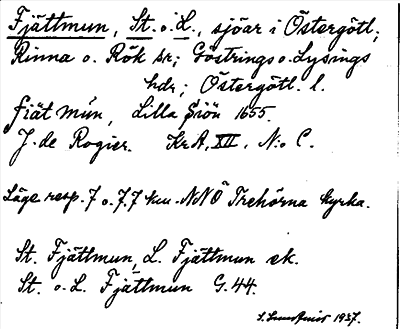 Fjättmun, St. o. L., sjöar i Östergötl;
Rinna o. Rök sr; Göstrings o. Lysings
hdr; Östergötl. l.
fiät mún, Lilla Siön 1655.
J. de Rogier. KrA, XII, N:o C.
Läge resp. 7 o. 7,7 km. NNÖ Trehörna kyrka.
St. Fjättmun, L. Fjättmun ek.
St. o. L. Fjättmun G. 44.
1937.